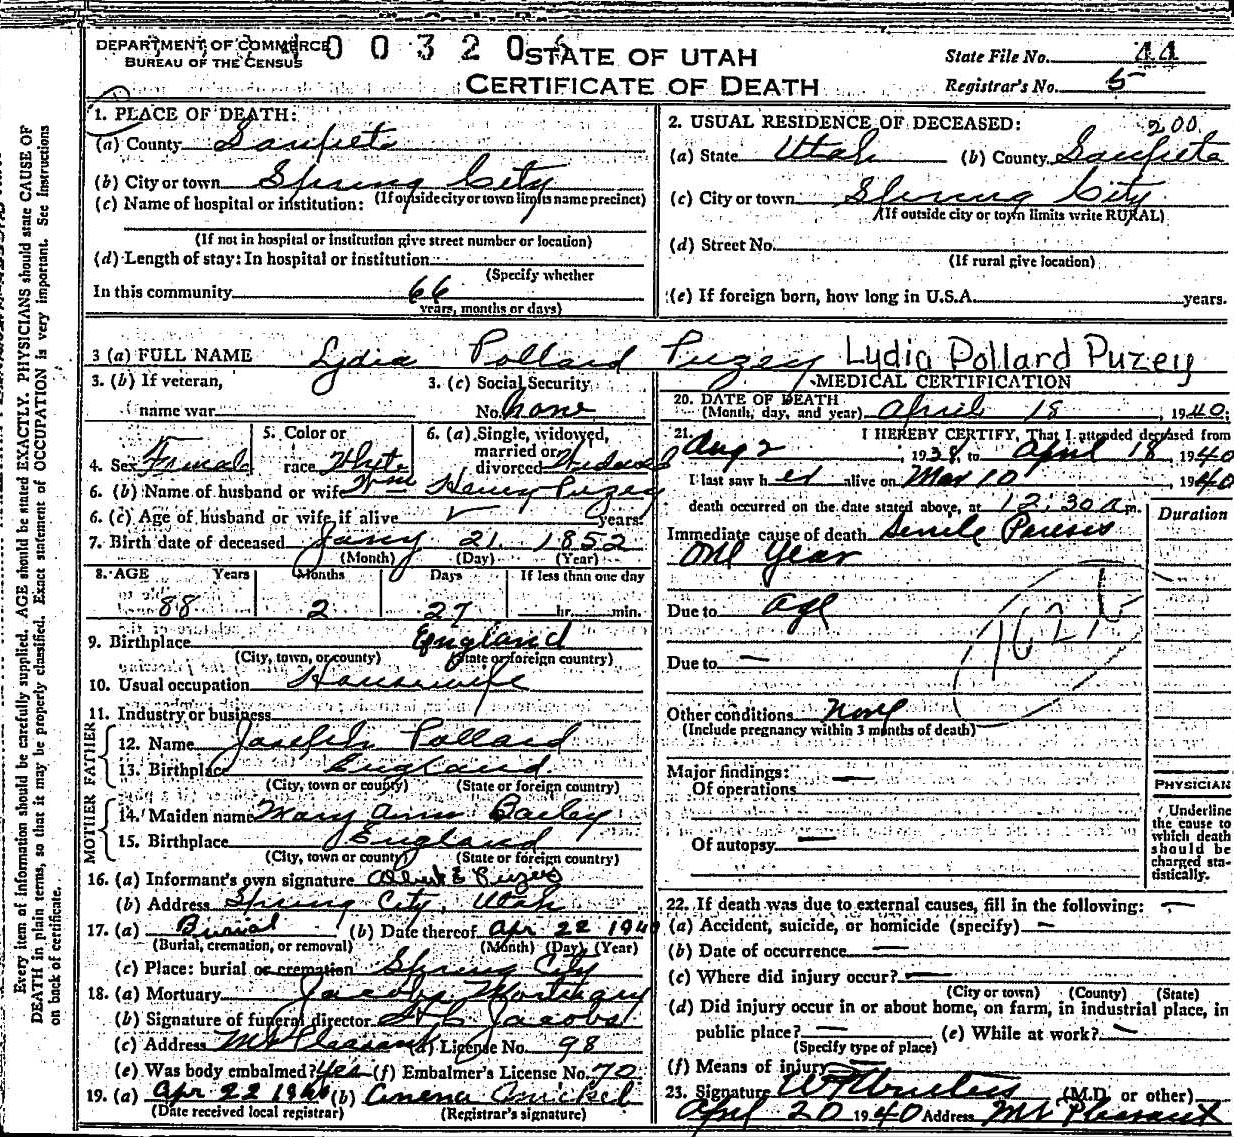 DEPARTMENT OF COMMERCE
BUREAU OF THE CENSUS
0 0 3 2 0
STATE OF UTAH
CERTIFICATE OF DEATH
State File No. 44
Registrar's No. 5
1. PLACE OF DEATH:
(a) County Sanpete
(b) City or town Spring City
(If outside city or town limits name precinct)
(c) Name of hospital or institution:
(If not in hospital or institution give street number or location)
(d) Length of stay: In hospital or institution
(Specify whether
In this community 66
years, months or days)
2. USUAL RESIDENCE OF DECEASED: 200
(a) State Utah (b) County Sanpete
(c) City or town Spring City
(If outside city or town limits write RURAL)
(d) Street No.
(If rural give location)
(e) If foreign born, how long in U.S.A. years.
3 (a) FULL NAME Lydia Pollard Puzey Lydia Pollard Puzey
3. (b) If veteran,
name war
3. (c) Social Security
No. none
4. Sex Female
5. Color or
race Whyte
6. (a) Single, widowed,
married or
divorced Widowed
6. (b) Name of husband or wife Wm Henry Puzey
6. (c) Age of husband or wife if alive years.
7. Birth date of deceased Jany 21 1852
(Month) (Day) (Year)
8. AGE Years Months Days If less than one day
88 2 27 hr. min.
9. Birthplace England
(City, town, or county) (State or foreign country)
10. Usual occupation Housewife
11. Industry or business
FATHER
12. Name Joseph Pollard
13. Birthplace England
(City, town or county) (State or foreign country)
MOTHER
14. Maiden name Mary Ann Bailey
15. Birthplace England
(City, town or county) (State or foreign country)
16. (a) Informant's own signature Albert E Puzey
(b) Address Spring City, Utah
17. (a) Burial (b) Date thereof Apr 22 1940
(Burial, cremation, or removal) (Month) (Day) (Year)
(c) Place: burial or cremation Spring City
18. (a) Mortuary Jacobs Mortuary
(b) Signature of funeral director Jacobs
(c) Address Mt Pleasant (d) License No. 98
(e) Was body embalmed? Yes (f) Embalmer's License No. 70
19. (a) Apr 22 1940 (b)
(Date received local registrar) (Registrar's signature)
MEDICAL CERTIFICATION
20. DATE OF DEATH
(Month, day, and year) April 18, 1940.
21. I HEREBY CERTIFY, That I attended deceased from
Aug 2, 1938, to April 18 1940
I last saw her alive on Mar 10, 1940
death occurred on the date stated above, at 12:30 a m.
Duration
Immediate cause of death Senile Paresis
One Year
Due to age
Due to —
162
Other conditions none
(Include pregnancy within 3 months of death)
Major findings:
Of operations —
Of autopsy —
PHYSICIAN
Underline
the cause to
which death
should be
charged sta-
tistically.
22. If death was due to external causes, fill in the following: —
(a) Accident, suicide, or homicide (specify) —
(b) Date of occurrence —
(c) Where did injury occur? —
(City or town) (County) (State)
(d) Did injury occur in or about home, on farm, in industrial place, in
public place? — (e) While at work? —
(Specify type of place)
(f) Means of injury
23. Signature (M.D. or other)
April 20 1940 Address Mt Pleasant
Every item of information should be carefully supplied. AGE should be stated EXACTLY. PHYSICIANS should state CAUSE OF
DEATH in plain terms, so that it may be properly classified. Exact statement of OCCUPATION is very important. See instructions
on back of certificate.